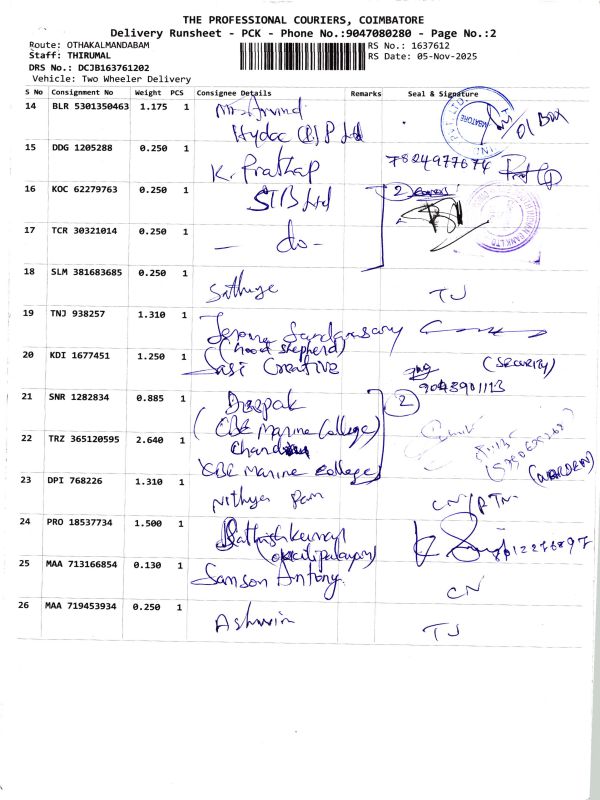 THE PROFESSIONAL COURIERS, COIMBATORE
Delivery Runsheet - PCK - Phone No.:9047080280 - Page No.:2
Route: OTHAKALMANDABAM
RS No.: 1637612
Staff: THIRUMAL
RS Date: 05-Nov-2025
DRS No.: DCJB163761202
Vehicle: Two Wheeler Delivery
S No Consignment No Weight PCS Consignee Details Remarks Seal & Signature
14 BLR 5301350463 1.175 1 Mr. Arvind
Hydac (I) P Ltd
01 Box
15 DDG 1205288 0.250 1
K. Prathap 7824977674
16 KOC 62279763 0.250 1 2
SIB Ltd
17 TCR 30321014 0.250 1
- do -
18 SLM 381683685 0.250 1
Sathiya TJ
19 TNJ 938257 1.310 1
Jerome
(Good Shepherd)
20 KDI 1677451 1.250 1
Sasi Creative (SECURITY)
9043901113
21 SNR 1282834 0.885 1 Deepak 2
(CBE Marine College)
22 TRZ 365120595 2.640 1 Chandru
(CBE Marine College) (WARDEN)
23 DPI 768226 1.310 1
Nithya Ram CN/RTN
24 PRO 18537734 1.500 1
Sathishkumar
25 MAA 713166854 0.130 1
Samson Antony CN
26 MAA 719453934 0.250 1
Ashwin TJ